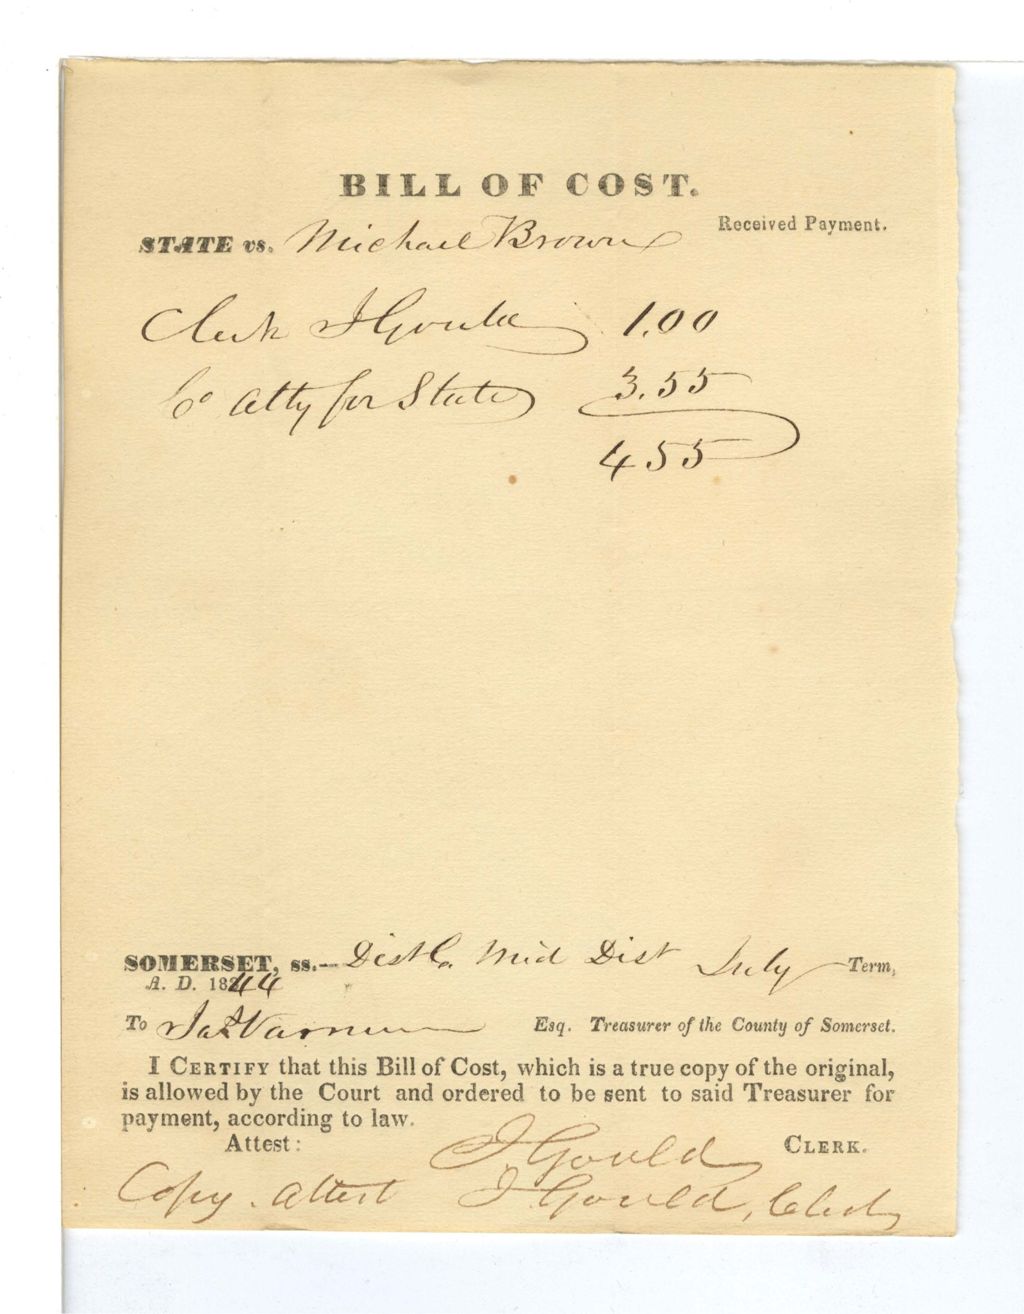 BILL OF COST.
Received Payment.
STATE vs. Michael Brown
Clerk J Gould 1.00
Co Atty for State 3.55
4 55
SOMERSET, ss.— Dist Co. Mid Dist July Term,
A. D. 1844
To Varnum Esq. Treasurer of the County of Somerset.
I CERTIFY that this Bill of Cost, which is a true copy of the original,
is allowed by the Court and ordered to be sent to said Treasurer for
payment, according to law.
Attest: J Gould CLERK.
Copy. Attest J Gould, Clerk